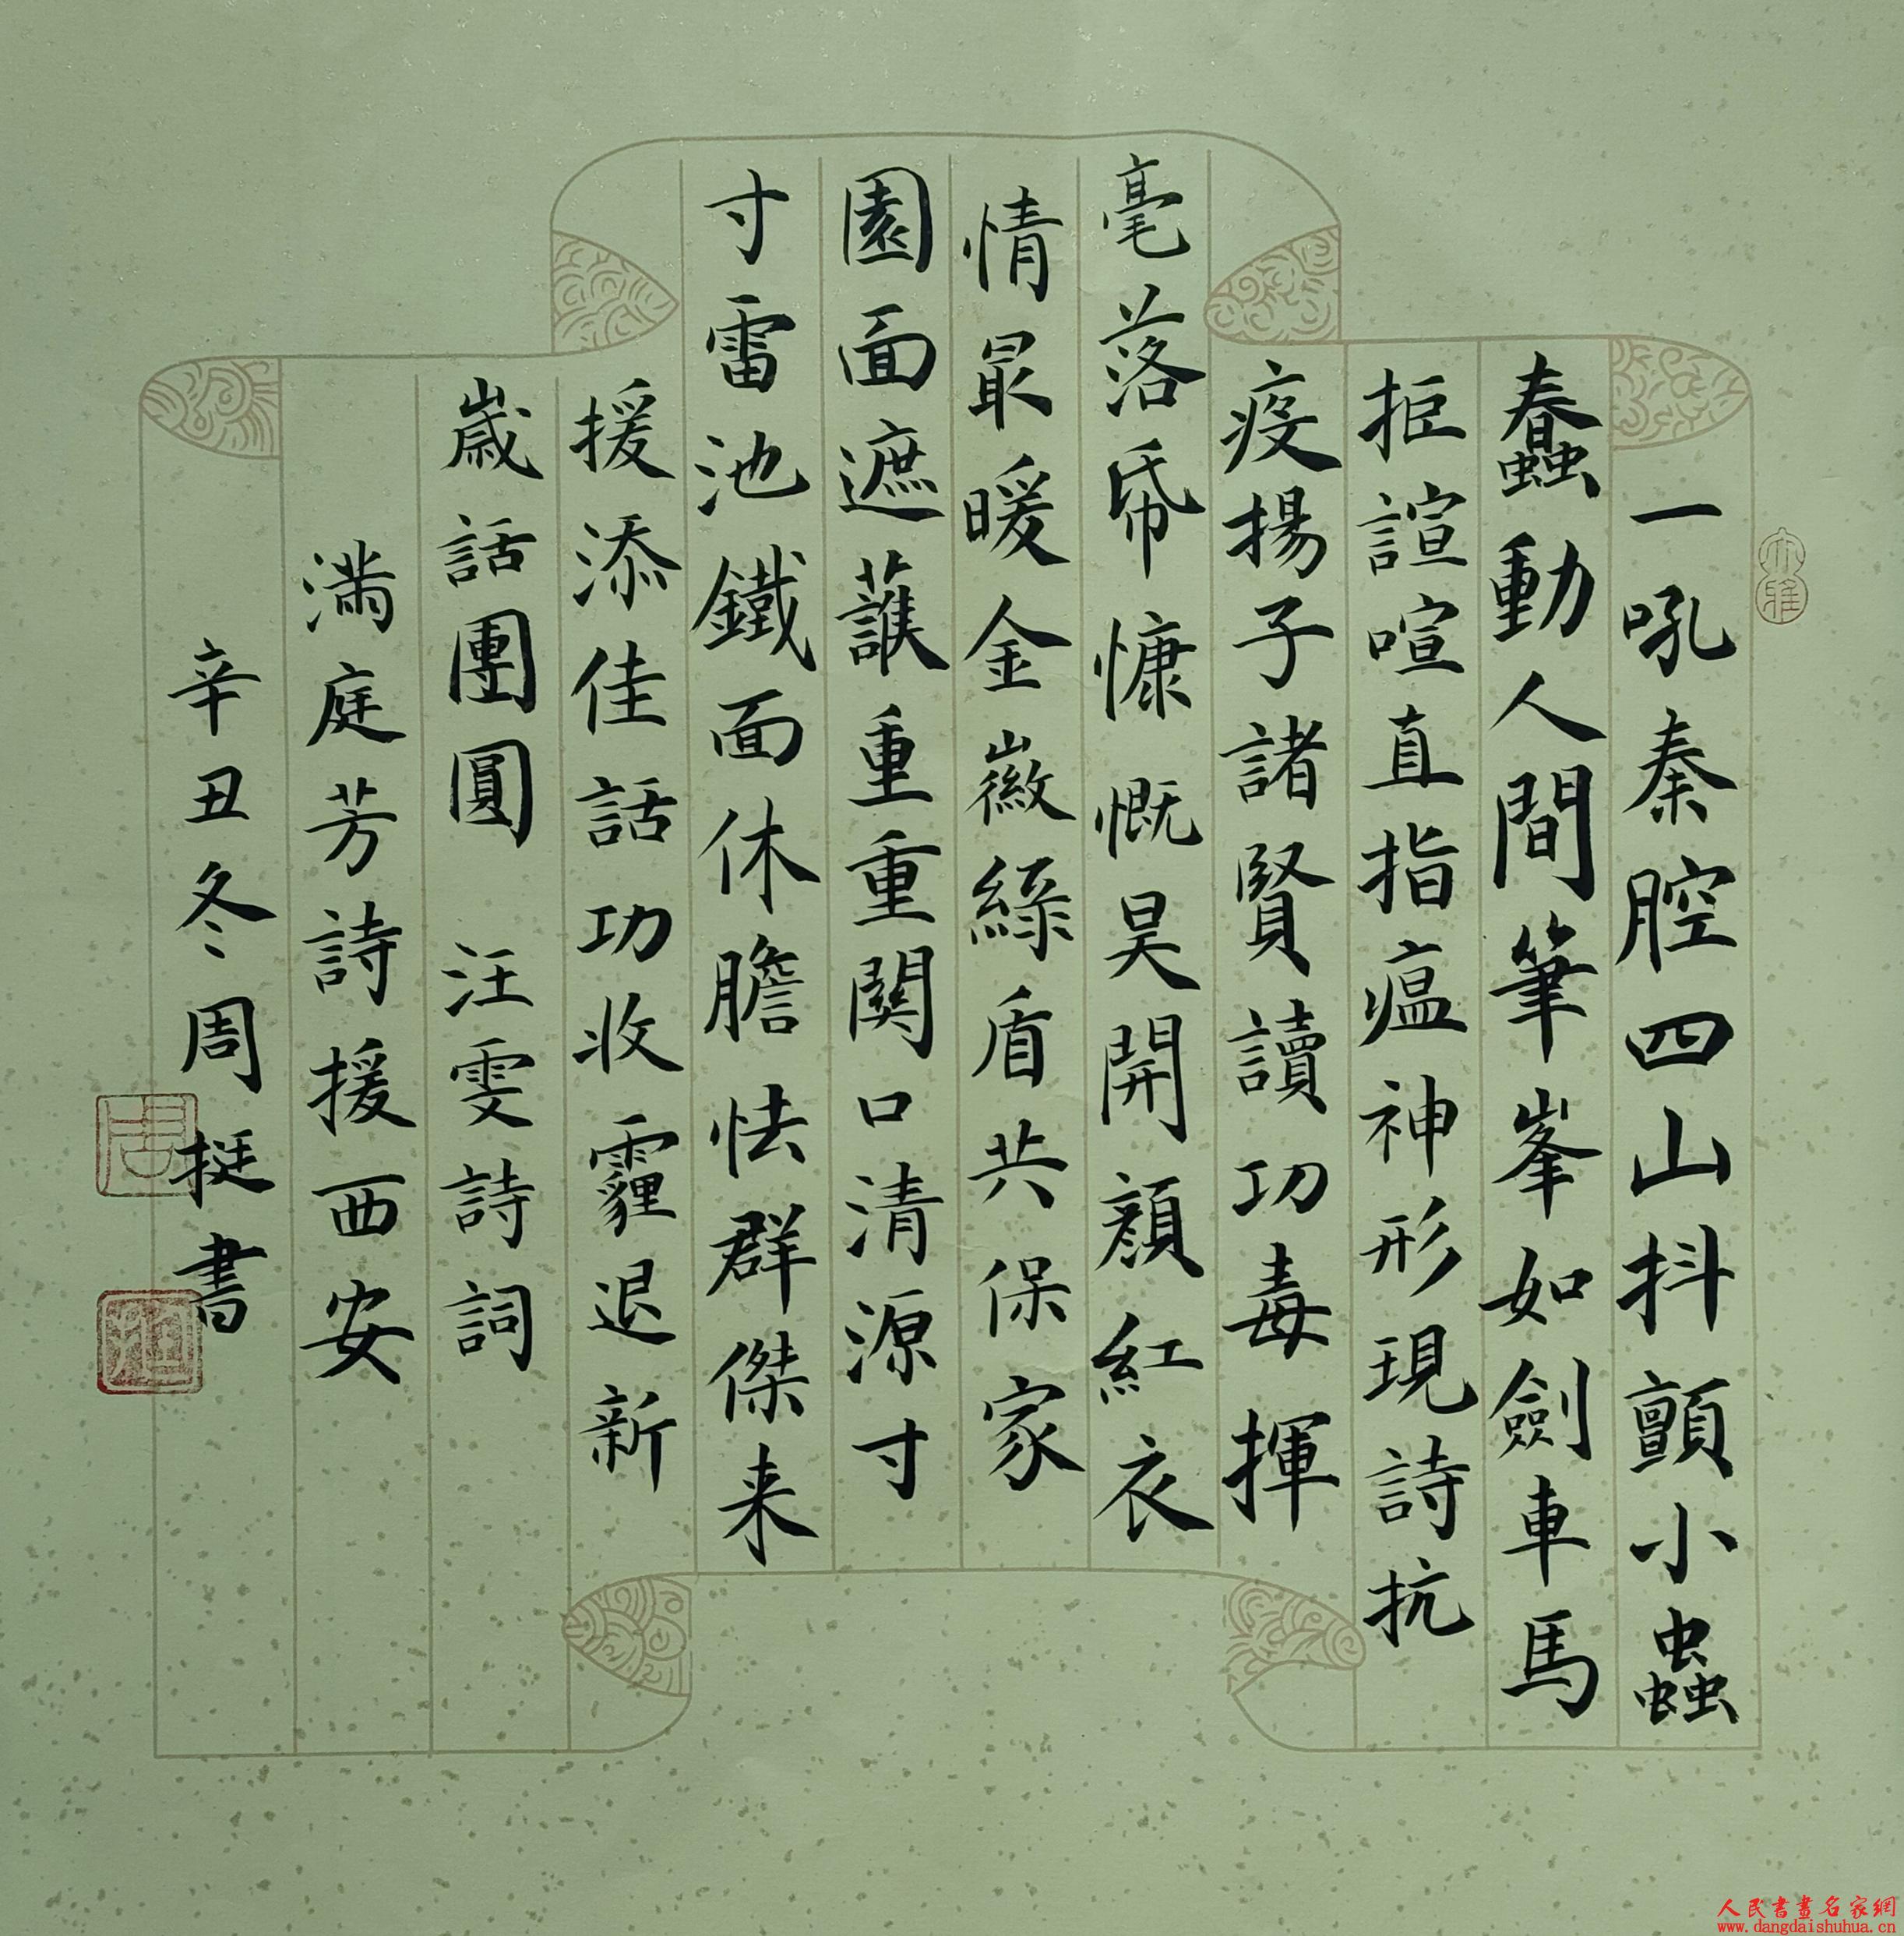 一吼秦腔四山抖顫小蟲
蠢動人間筆峯如劍車馬
拒諠喧直指瘟神形現詩抗
疫揚子諸賢讀功毒揮
毫落帋慷慨昊開顔紅衣
情最暖金徽綠盾共保家
園面遮護重重関口清源寸
寸雷池鐵面休膽怯群傑来
援添佳話功收霾退新
歳話團圓 汪雯詩詞
滿庭芳詩援西安
辛丑冬周挺書
大雅
周
挺
人民書畫名家網
www.dangdaishuhua.cn